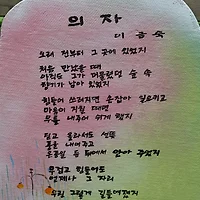 의 자
이 금 숙
오래 전부터 그 곳에 있었지
처음 만났을 때
아직도 그가 머물렀던 숲 속
향기가 남아 있었지
힘들어 쓰러지면 손잡아 일으키고
마음이 거칠 때면
무릎 내주어 쉬게 했지
믿고 올라서도 선뜻
몸을 내어주고
온종일 등 뒤에서 안아 주었지
무겁고 힘들어도
언제나 그 자리
우린 그렇게 길들여졌지